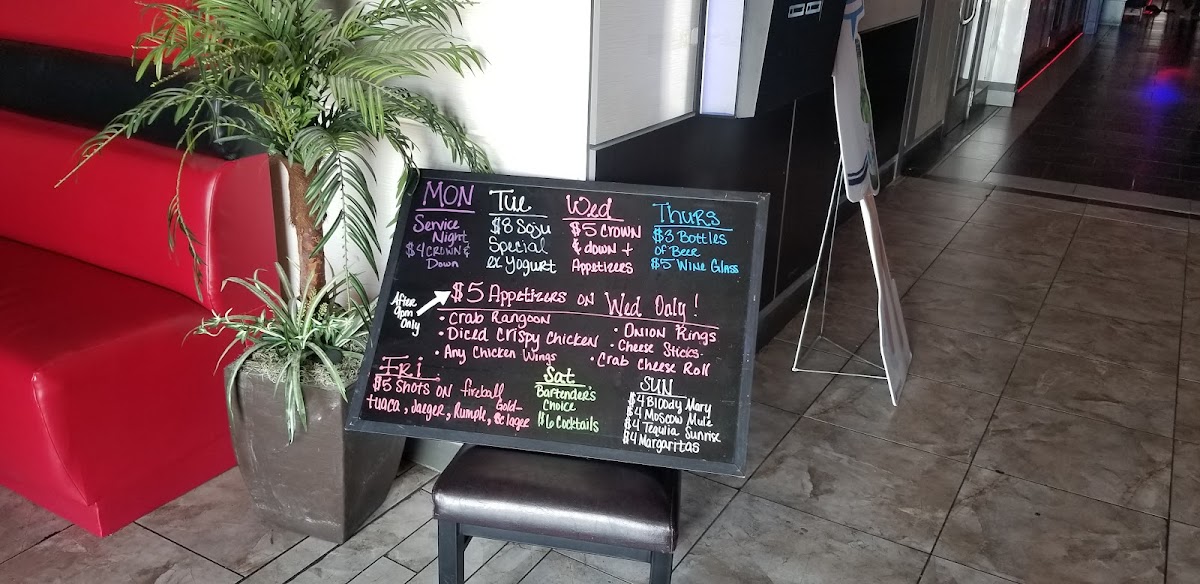 MON
Service
Night
$4 CROWN &
Down
Tue
$8 Soju
Special
ex Yogurt
Wed
$5 CROWN
& down +
Appetizers
THURS
$3 Bottles
OF Beer
$5 Wine Glass
After
9pm
Only
$5 Appetizers on Wed Only!
• Crab Rangoon
• Diced Crispy Chicken
• Any Chicken Wings
• ONION Rings
• Cheese Sticks.
• Crab Cheese Roll
Fri
$5 Shots on fireball
tuaca, Jaeger, Rumple, Gold-
schlager
Sat
Bartender's
Choice
$6 Cocktails
SUN
$4 Bloody Mary
$4 Moscow Mule
$4 Tequila Sunrise
$4 Margaritas